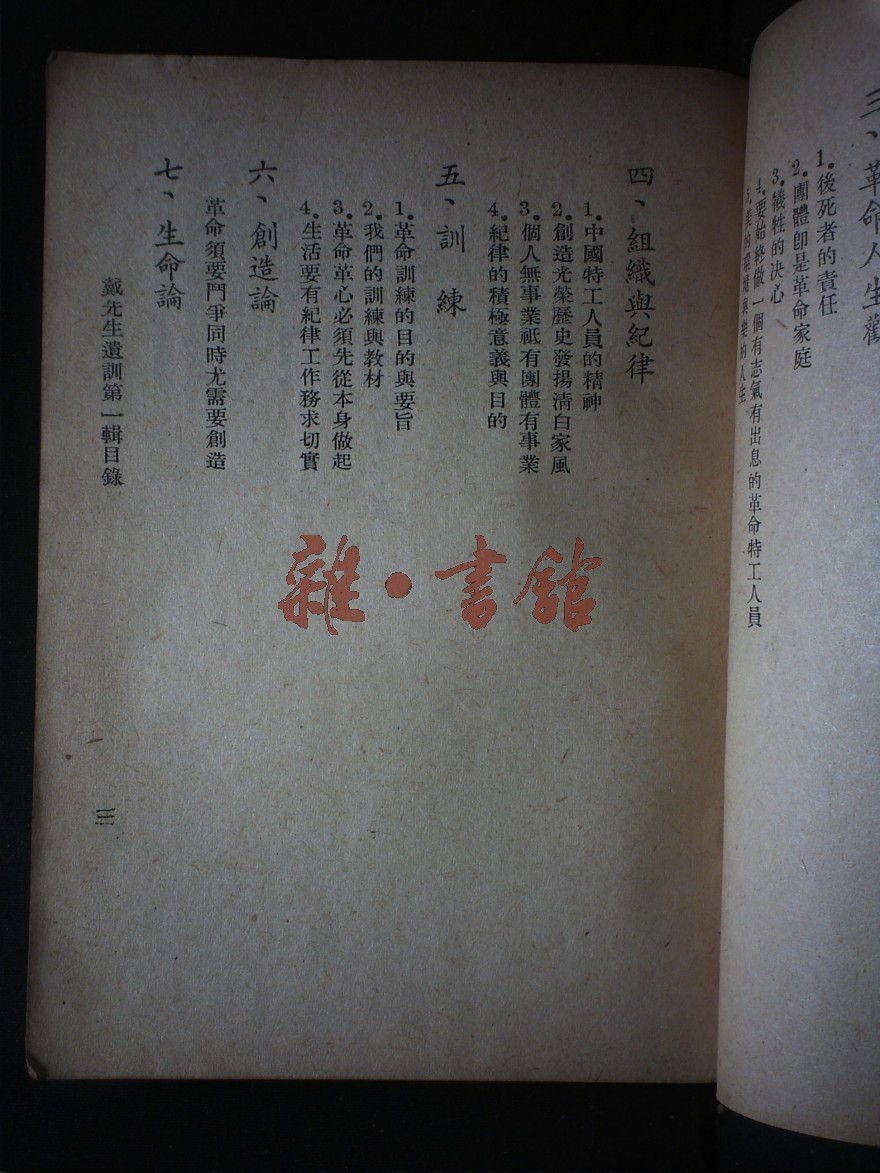 三、革命人生觀
1.後死者的責任
2.團體卽是革命家庭
3.犧牲的決心
4.要始終做一個有志氣有出息的革命特工人員
5.美的環境與樂的人生
四、組織與紀律
1.中國特工人員的精神
2.創造光榮歷史發揚淸白家風
3.個人無事業祗有團體有事業
4.紀律的積極意義與目的
五、訓練
1.革命訓練的目的與要旨
2.我們的訓練與教材
3.革命革心必須先從本身做起
4.生活要有紀律工作務求切實
六、創造論
革命須要鬥爭同時尤需要創造
七、生命論
戴先生遺訓第一輯目錄
三
雜·書館